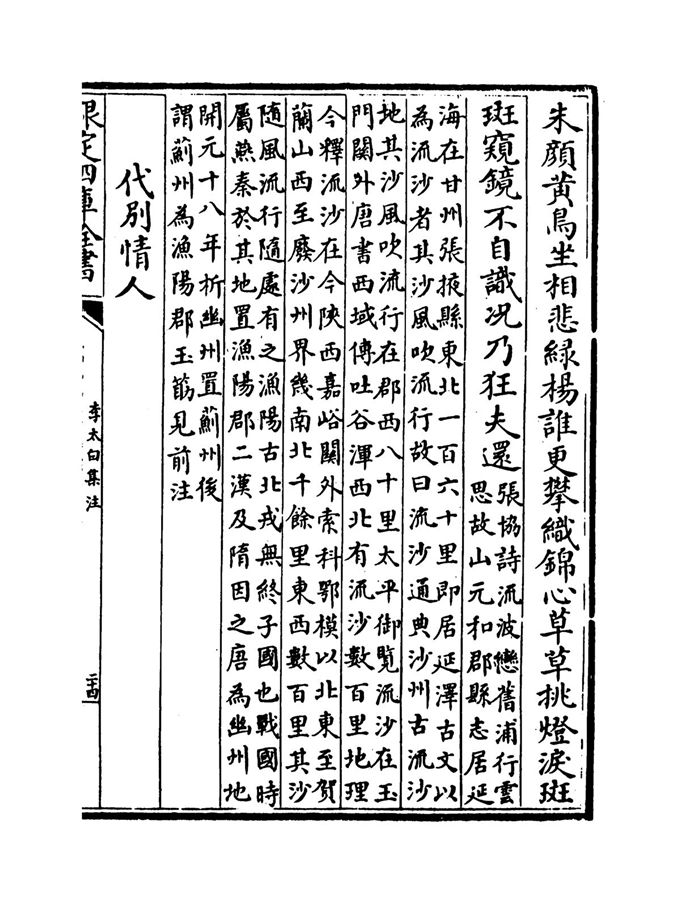 朱顔黄鳥坐相悲緑楊誰更攀織錦心草草挑燈淚斑
斑窺鏡不自識况乃狂夫還
張協詩流波戀舊浦行雲
思故山元和郡縣志居延
海在甘州張掖縣東北一百六十里即居延澤古文以
為流沙者其沙風吹流行故曰流沙通典沙州古流沙
地其沙風吹流行在郡西八十里太平御覽流沙在玉
門關外唐書西域傳吐谷渾西北有流沙數百里地理
今釋流沙在今陜西嘉峪關外索科鄂模以北東至賀
蘭山西至廢沙州界幾南北千餘里東西數百里其沙
隨風流行隨處有之漁陽古北戎無終子國也戰國時
屬燕秦於其地置漁陽郡二漢及隋因之唐為幽州地
開元十八年析幽州置薊州後
謂薊州為漁陽郡玉筯見前注
代別情人
欽定四庫全書
李太白集注
二十四